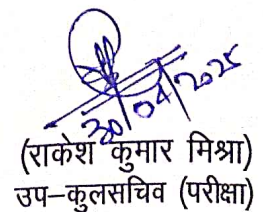 30/04/2025
(राकेश कुमार मिश्रा)
उप–कुलसचिव (परीक्षा)